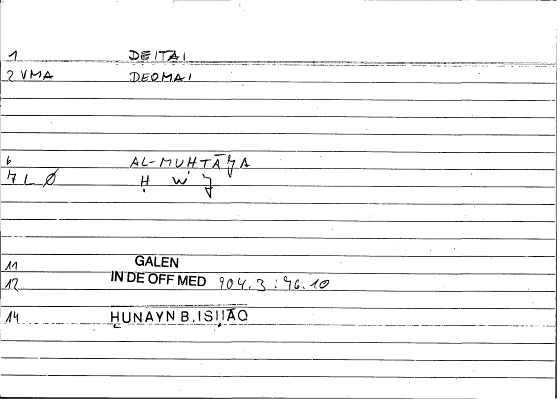 1 DEITAI
2 VMA DEOMAI
6 AL-MUHTĀǦA
7 L Ø Ḥ W Ǧ
11 GALEN
12 IN DE OFF MED 904.3 : 46.10
14 ḤUNAYN B. ISḤĀQ